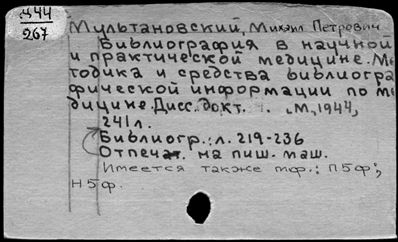 Д44
267
Мультановский, Михаил Петрович
Библиография в научной
и практической медицине. Ме
тодика и средства библиогра
фической информации по ме
дицине. Дисс. докт. . М, 1944,
241 л.
Библиогр.: л. 219-236
Отпечат. на пиш. маш.
Имеется также мф.: П5ф;
Н5ф.